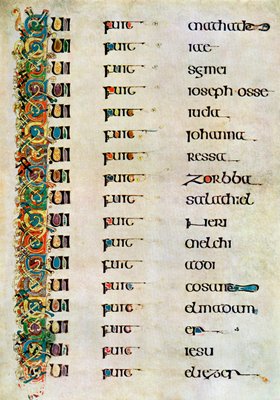 QUI fuit mathathiae
QUI fuit
QUI fuit semei
QUI fuit ioseph osse
QUI fuit iuda
QUI fuit iohanna
QUI fuit ressa
QUI fuit zorbba
QUI fuit salathiel
QUI fuit neri
QUI fuit melchi
QUI fuit addi
QUI fuit cosam
QUI fuit elmadam
QUI fuit er
QUI fuit iesu
QUI fuit eliezer